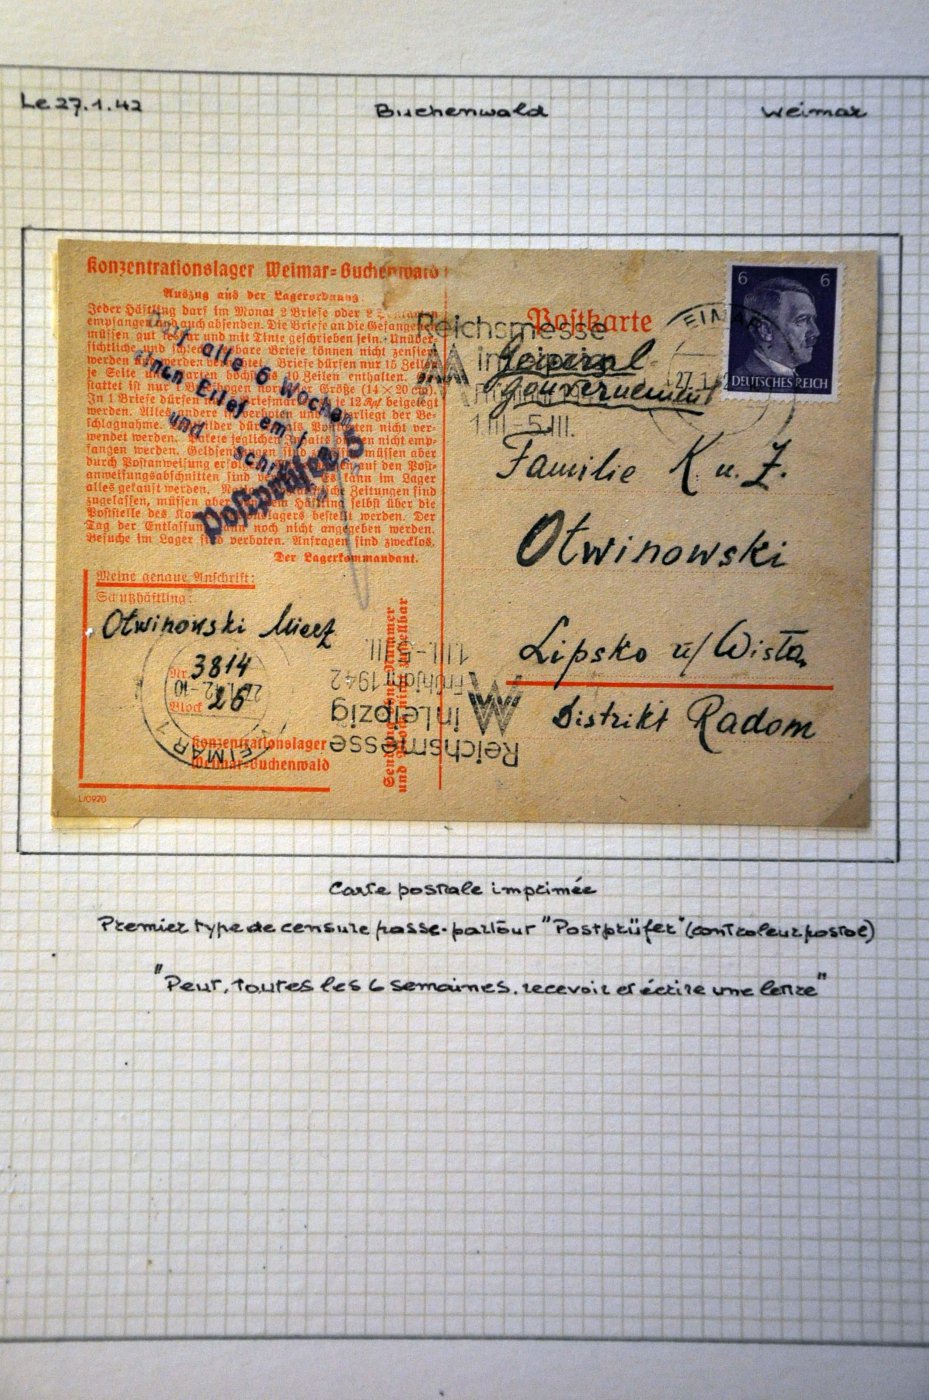 Le 27.1.42
Buchenwald
Weimar
Konzentrationslager Weimar=Buchenwald
Auszug aus der Lagerordnung:
Jeder Häftling darf im Monat 2 Briefe oder 2
empfangen auch absenden. Die Briefe an die Gefan
müssen gut lesbar und mit Tinte geschrieben sein. Unüber
sichtliche und schlecht lesbare Briefe können nicht zensiert
werden werden Briefe dürfen nur 15 Zeilen
je Seite und Karten 10 Zeilen enthalten.
stattet ist nur 1 Briefbogen Größe (14 × 20 cm).
In 1 Briefe dürfen Briefmarken je 12 beigelegt
werden. Alles andere verboten und unterliegt der Be-
schlagnahme. dürfen als Postkarten nicht ver-
wendet werden. Pakete jeglichen Inhalts dürfen nicht emp-
fangen werden. Geldsendungen müssen aber
durch Postanweisung erfolgen auf den Post-
anweisungsabschnitten sind Es kann im Lager
alles gekauft werden. Zeitungen sind
zugelassen, müssen aber Häftling selbst über die
Poststelle des Konzentrationslagers bestellt werden. Der
Tag der Entlassung kann noch nicht angegeben werden.
Besuche im Lager sind verboten. Anfragen sind zwecklos.
Der Lagerkommandant.
Darf alle 6 Wochen
einen Brief empf
und schr
Postprüfer
5
Meine genaue Anschrift:
Schutzhäftling:
Otwinowski Miecz
Nr. 3814
Block 26
Konzentrationslager
Weimar-Buchenwald
L/0920
Postkarte
6 6
DEUTSCHES REICH
EIMAR
27.1.42
Reichsmesse
in Leipzig
1.III.-5.III.
General
gouvernement
Familie K u. Z.
Otwinowski
Lipsko u/Wisła
Distrikt Radom
Reichsmesse
in Leipzig
Frühjahr 1942
1.III.-5.III.
EIMAR 1
Carte postale imprimée
Premier type de censure passe-partout "Postprüfer" (controleur postal)
"Peut, toutes les 6 semaines, recevoir et écrire une lettre"